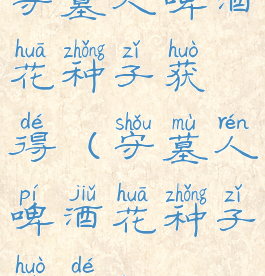 守墓人啤酒
huā zhǒng zǐ huò
花种子获
dé shǒu mù rén
得（守墓人
pí jiǔ huā zhǒng zǐ
啤酒花种子
huò dé